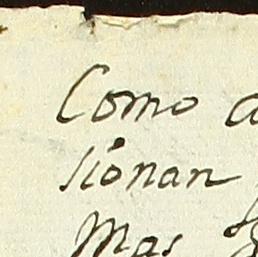 Como a
sionan
Mas